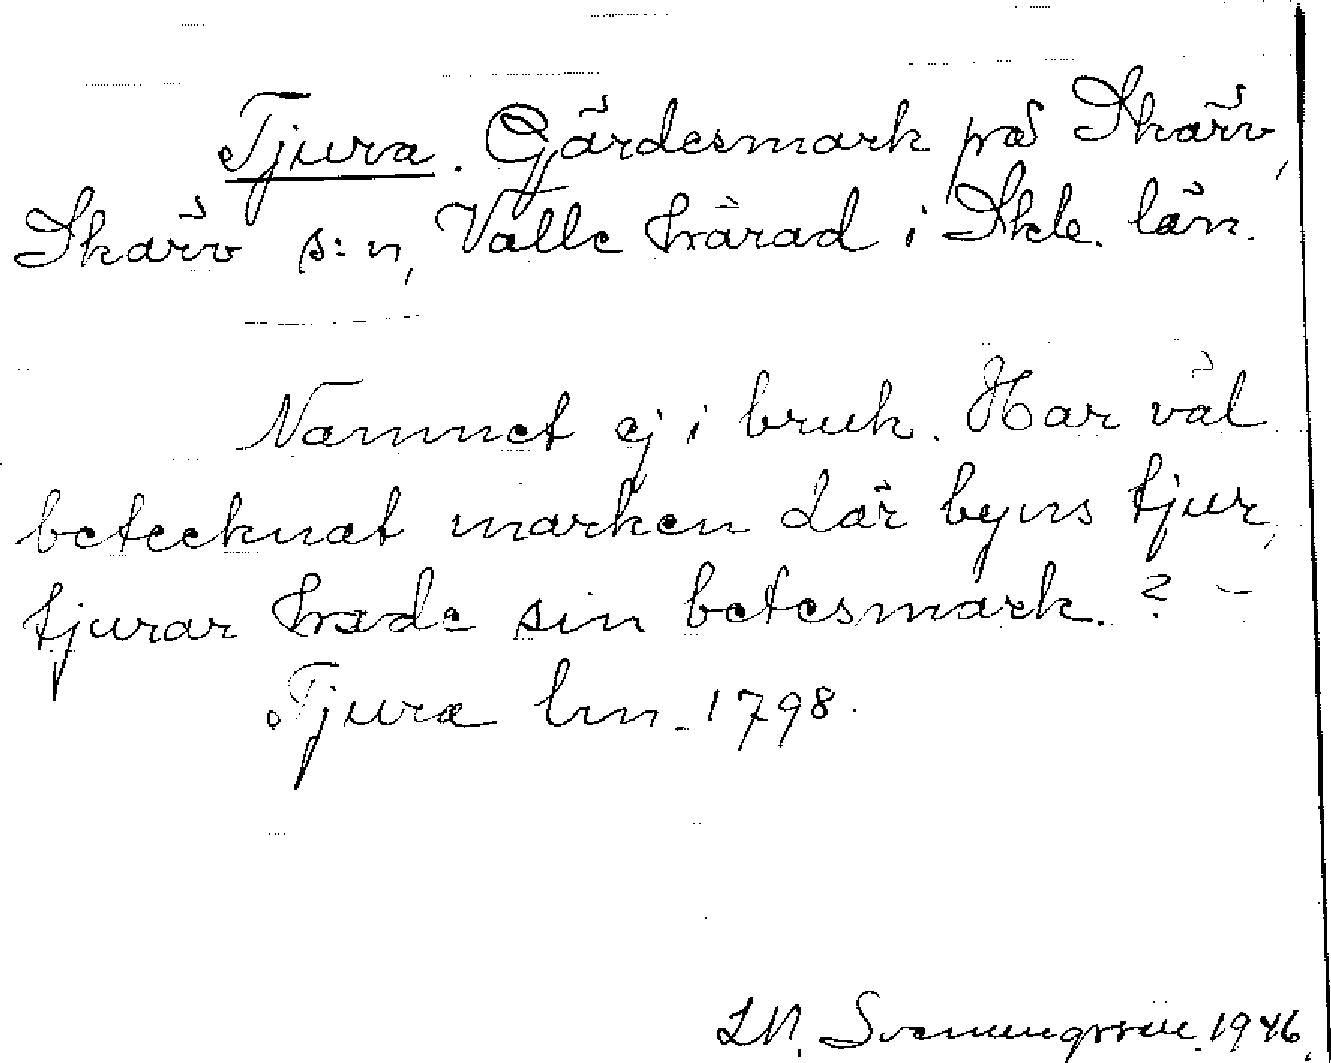 Tjura. Gärdesmark på Skärv,
Skärv s:n, Valle härad i Skb. län.
Namnet ej i bruk. Har väl
betecknat marken där byns tjur,
tjurar hade sin betesmark. ? -
Tjura lm. 1798.
L.N. Svenungsson. 1946.